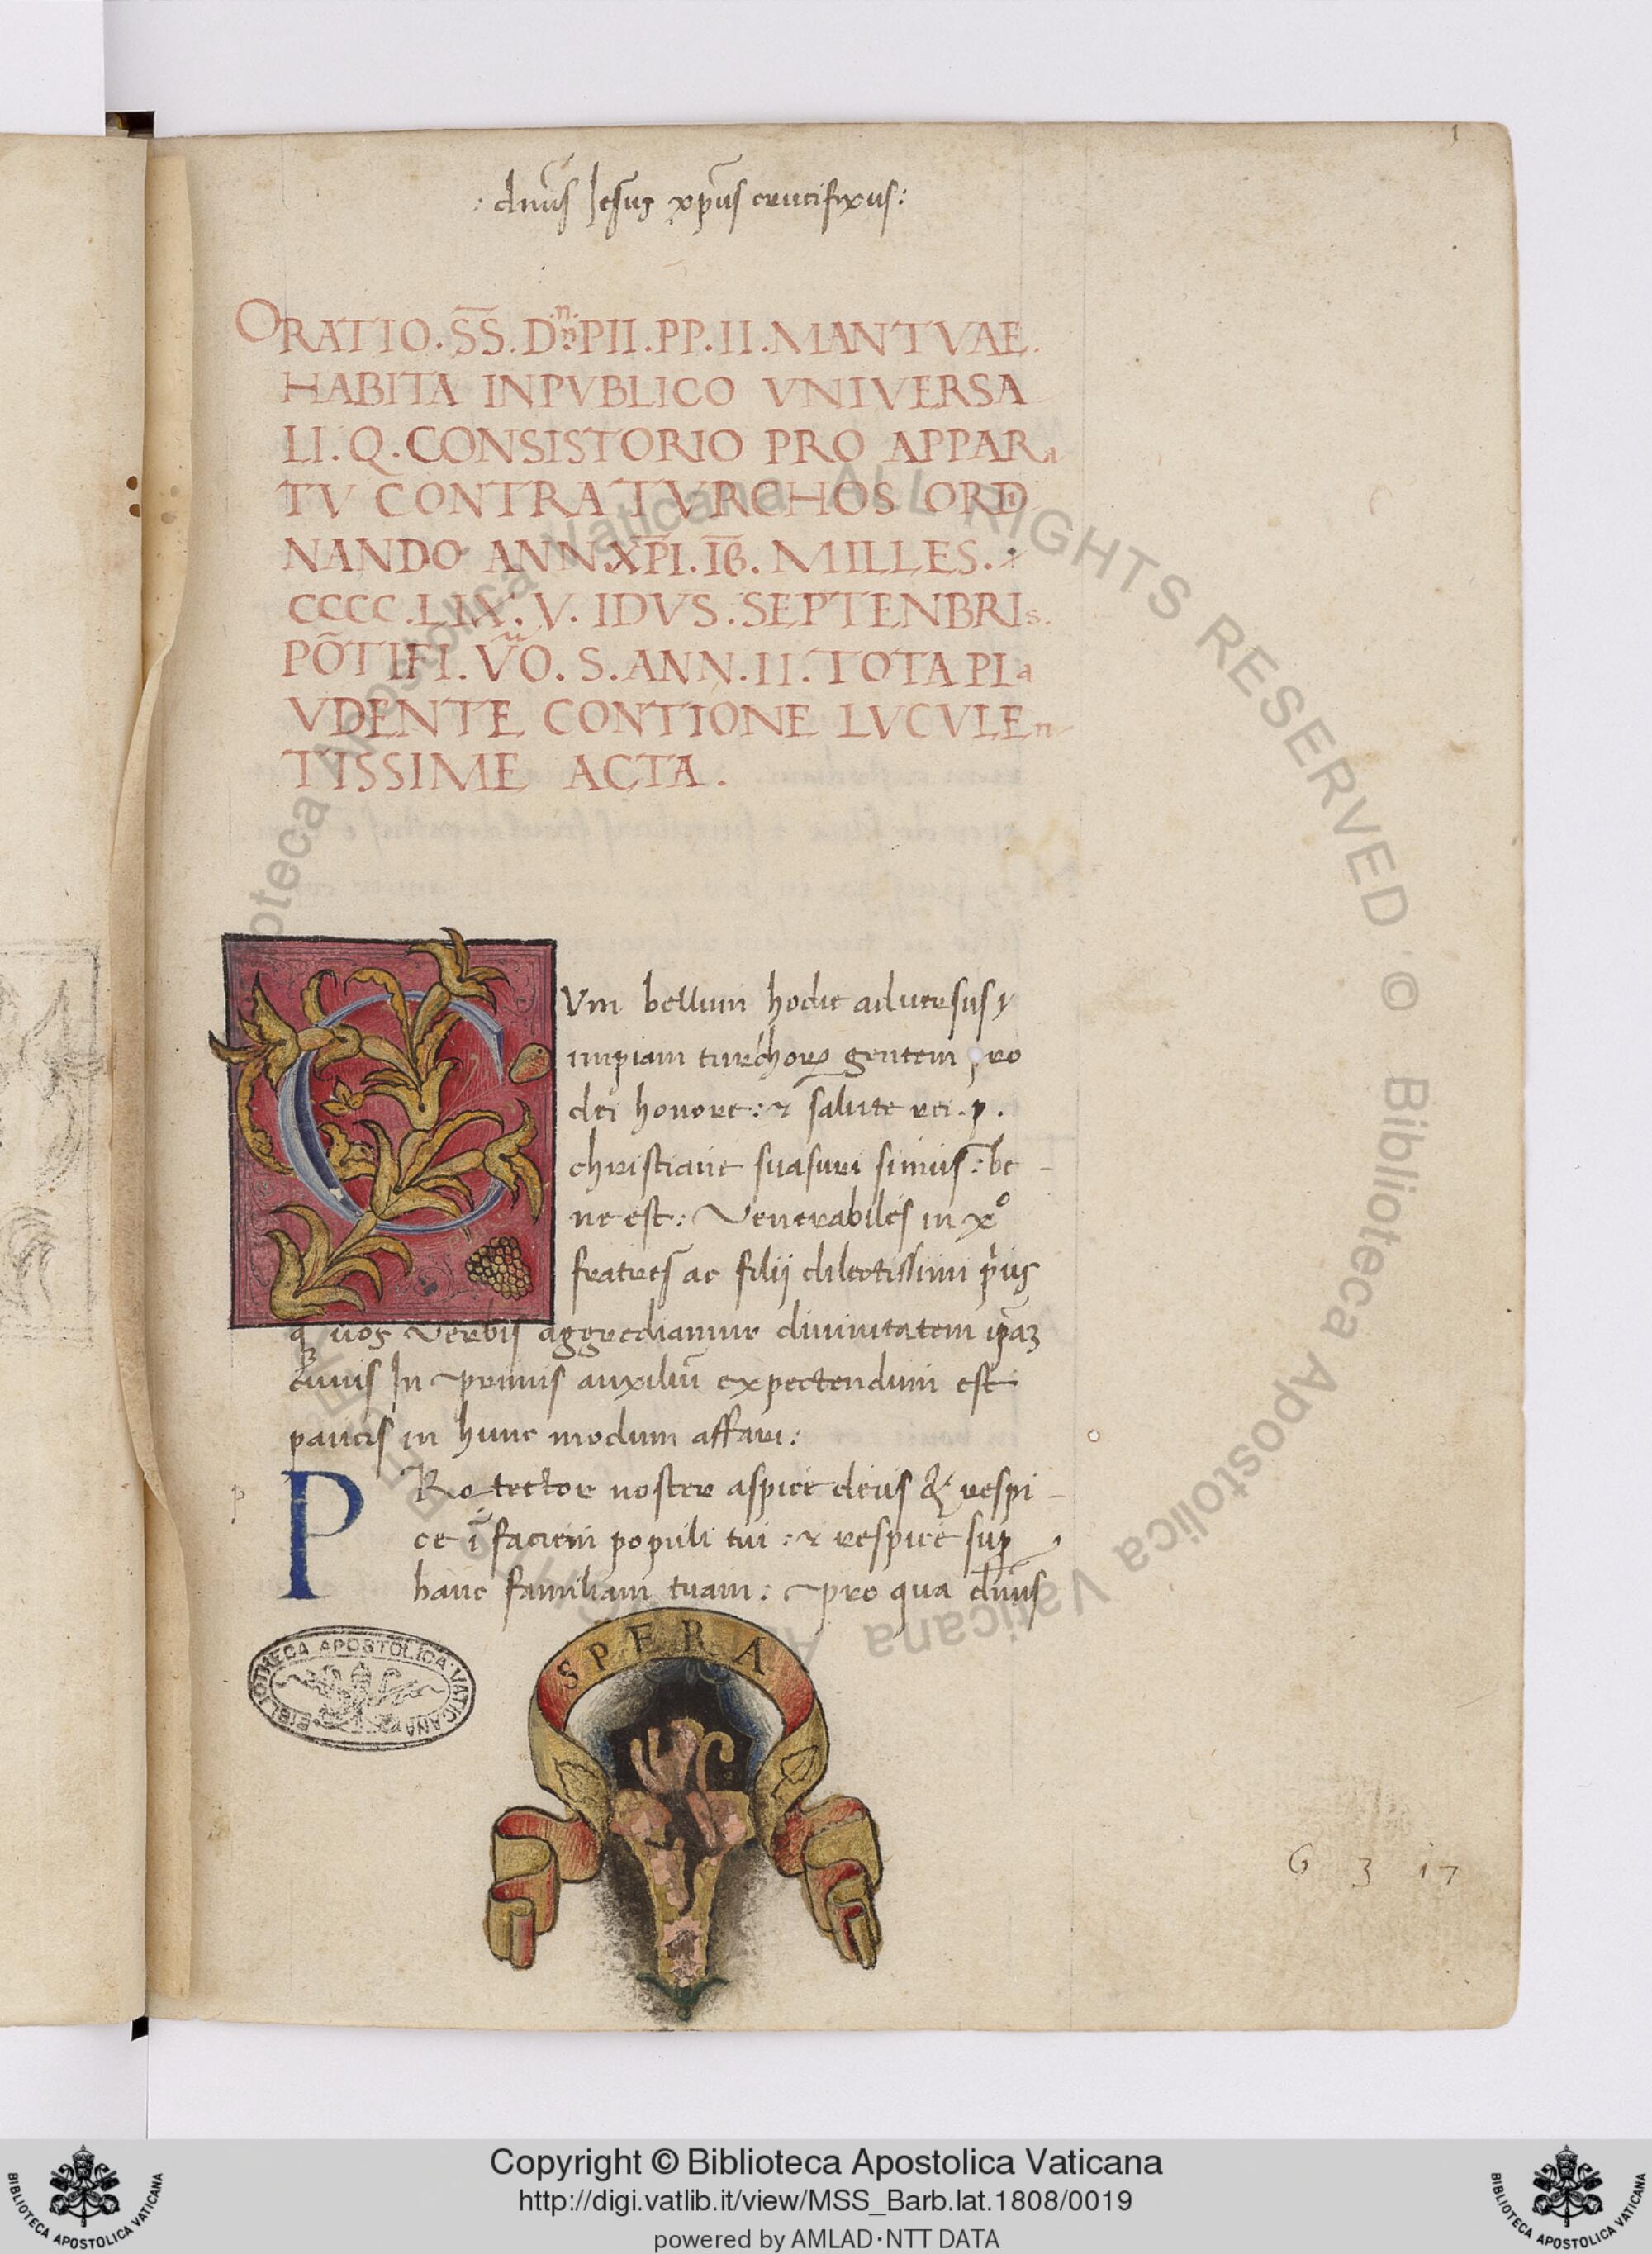 1
: dn̄us Jesus xp̄us crucifixus :
ORATIO . S̄S . D. n. n. PII . PP . II . MANTVAE .
HABITA INPVBLICO VNIVERSA
LI . Q . CONSISTORIO PRO APPARa
TV CONTRA TVRCHOS ORDi
NANDO ANN. XP̄I . IB̄ . MILLES .
CCCC . LIX . V . IDVS . SEPTENBRIs .
PÕTIFI . VͧO . S . ANN . II . TOTA PLa
VDENTE CONTIONE LVCVLEn
TISSIME ACTA .
CVm bellum hodie aduersus
impiam turchoꝝ gentem pro
dei honore : & salute rei . p .
christiane suasuri simus : be-
ne est : Venerabiles in xº
fratres ac filij dilectissimi pͥus
qꝫ uos verbis aggrediamur diuinitatem ip̄aꝫ
cuius In primis auxiliū expectendum est
paucis in hunc modum affari :
p
PRotector noster aspice deus & respi-
ce ī faciem populi tui : & respice sup̱
hanc familiam tuam : pro qua dn̄us
SPERA
BIBLIOTHECA APOSTOLICA VATICANA
6 3 17
Biblioteca Apostolica Vaticana ALL RIGHTS RESERVED © Biblioteca Apostolica Vaticana
Copyright © Biblioteca Apostolica Vaticana
http://digi.vatlib.it/view/MSS_Barb.lat.1808/0019
powered by AMLAD·NTT DATA
BIBLIOTECA APOSTOLICA VATICANA
BIBLIOTECA APOSTOLICA VATICANA